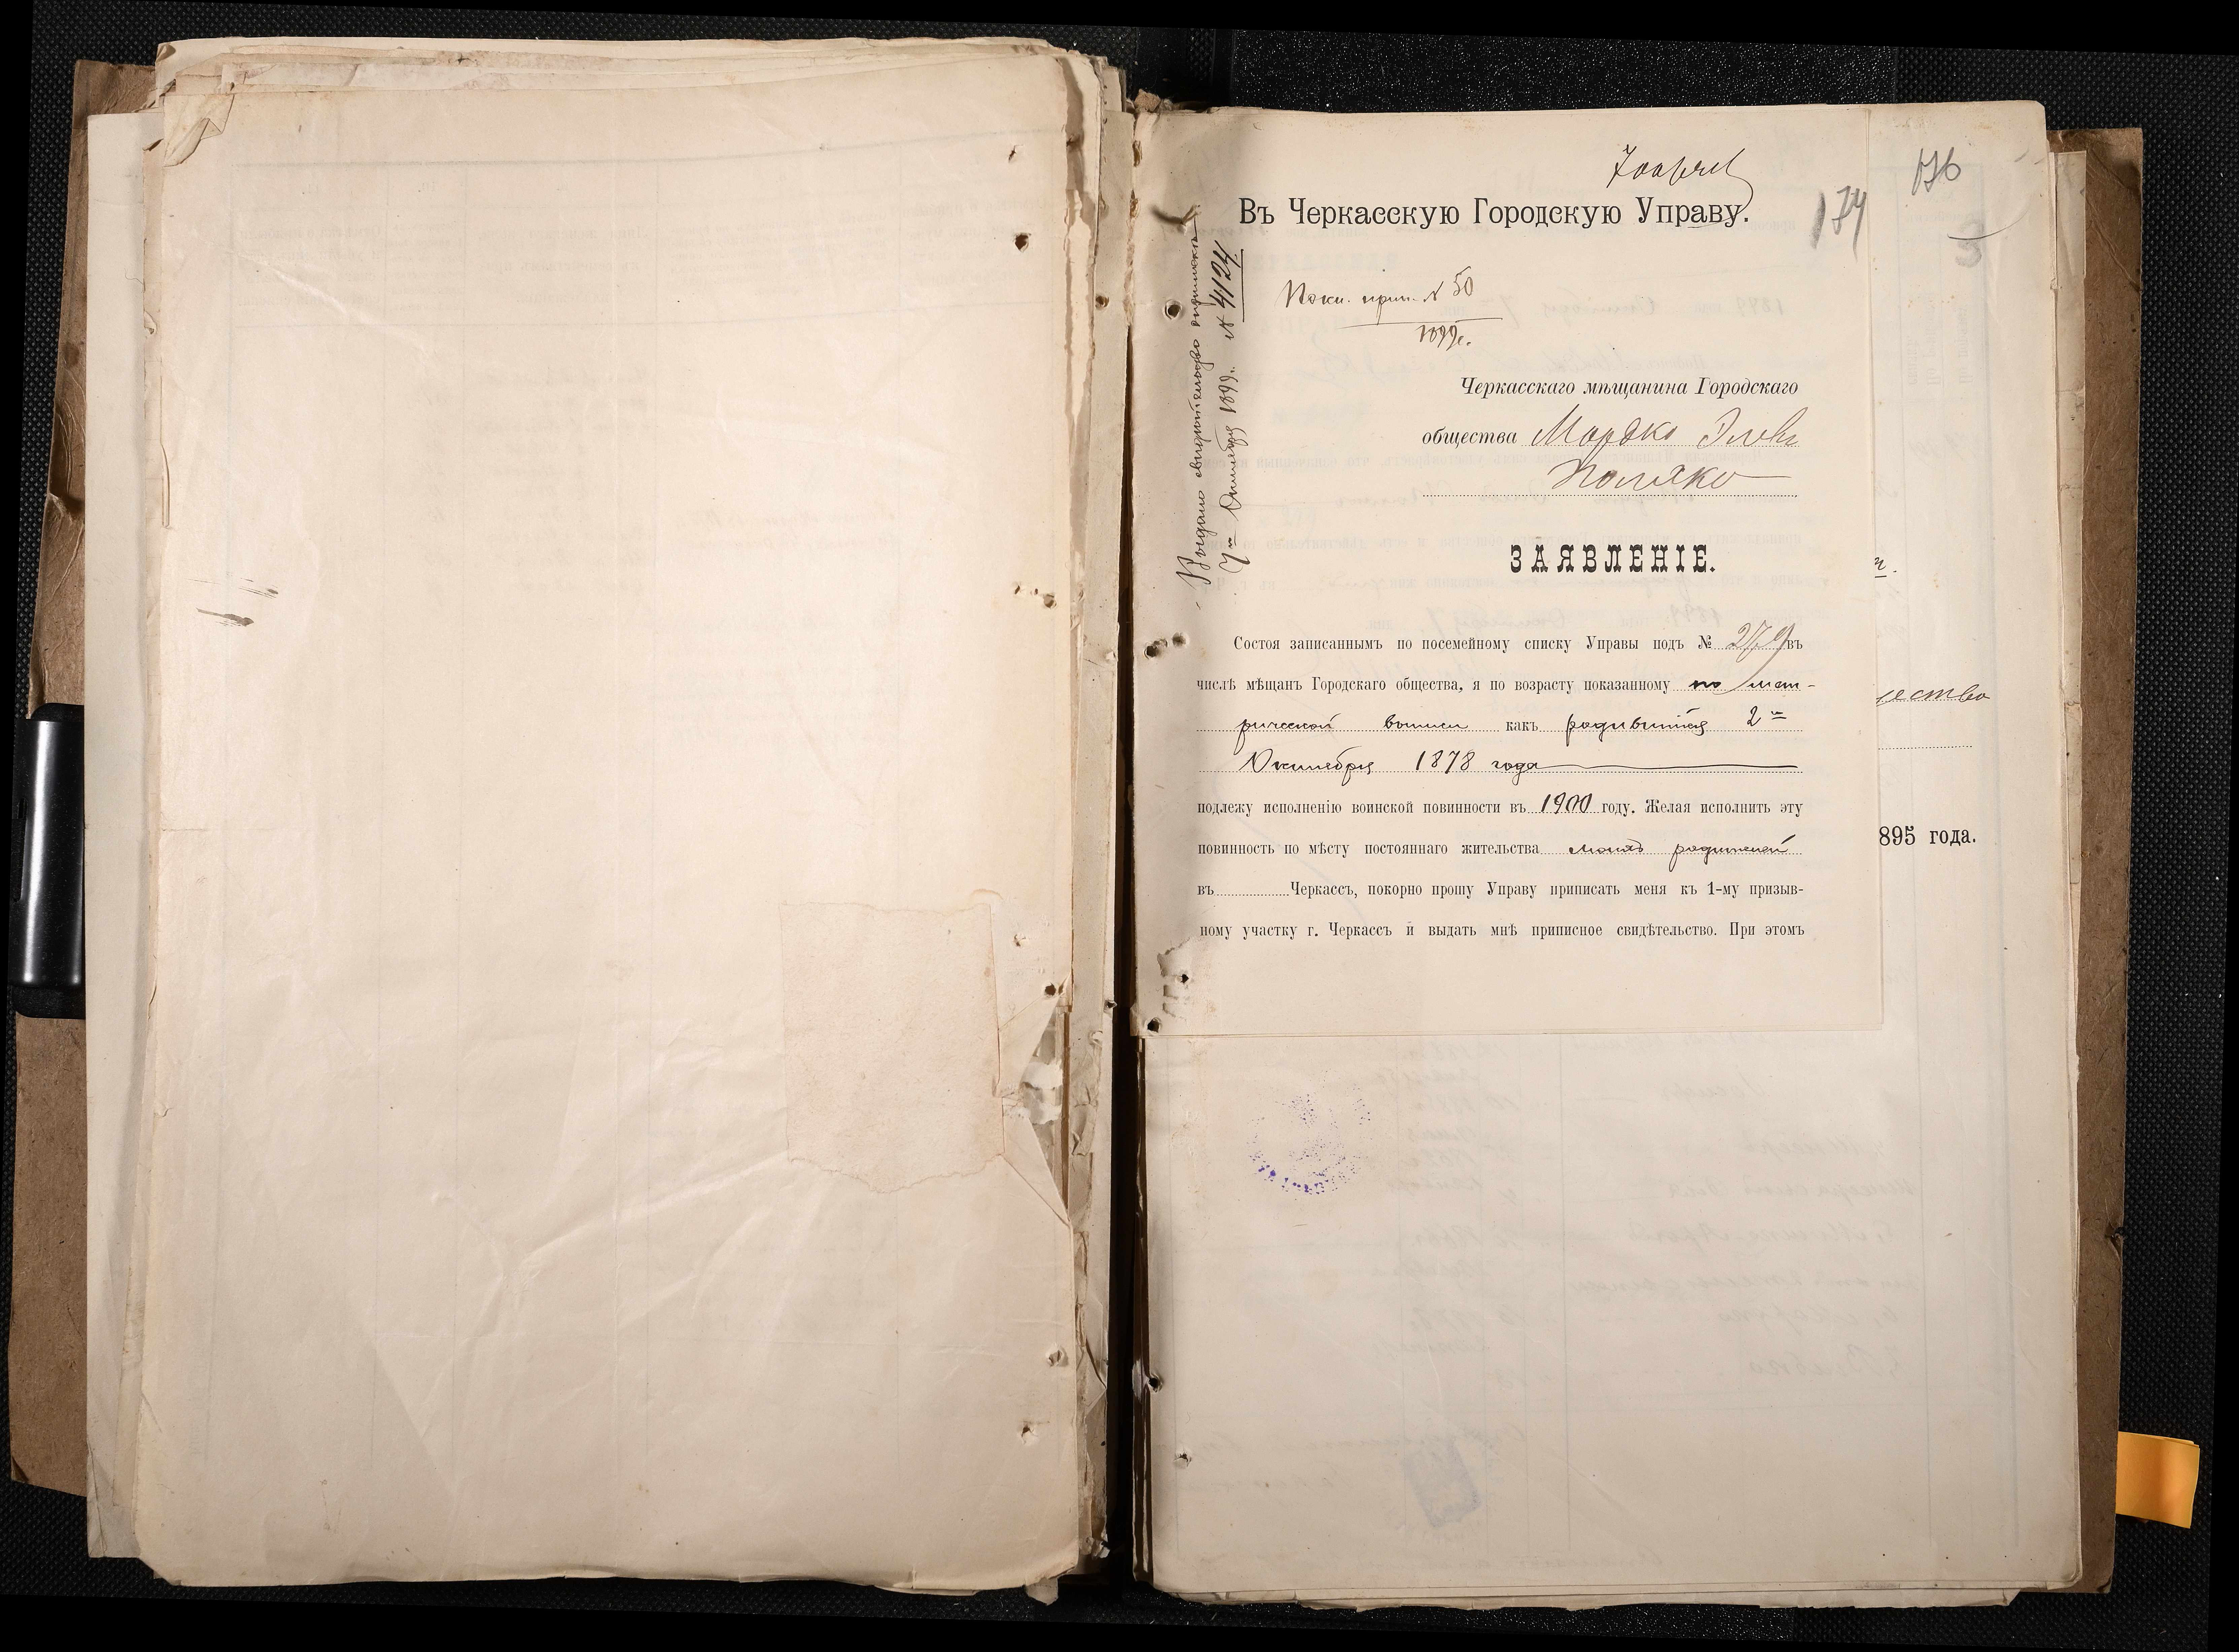 Въ Черкасскую Городскую Управу.
174
176
3
Выдано свидѣтельство о припискѣ
7го Октября 1899г. № 4124
прип. № 50
1899г.
Черкасскаго мѣщанина Городскаго
общества Мордко
Поляко
ЗАЯВЛЕНІЕ.
г.
Состоя записаннымъ по посемейному списку Управы подъ № 279 въ
числѣ мѣщанъ Городскаго общества, я по возрасту показанному по мет-
рической выписи какъ родившійся 2го
Октября 1878 года
чество
подлежу исполненію воинской повинности въ 1900 году. Желая исполнить эту
895 года.
повинность по мѣсту постояннаго жительства моихъ родителей
въ Черкассъ, покорно прошу Управу приписать меня къ 1-му призыв-
ному участку г. Черкассъ и выдать мнѣ приписное свидѣтельство. При этомъ